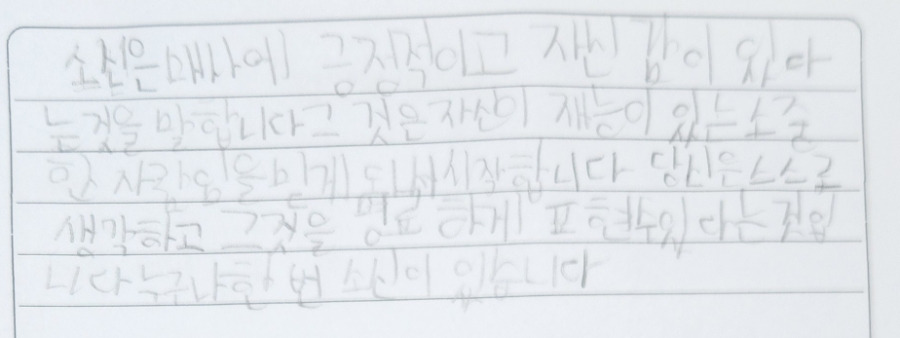 소신은 매사에 긍정적이고 자신 감이 있다
는 것을 말합니다 그 것은 자신이 재능이 있는 소중
한 사람임을 믿게 되면서 시작합니다 당신은 스스로
생각하고 그것을 명료 하게 표 현수있 다는 것입
니다 누구나 한 번 소신이 있습니다